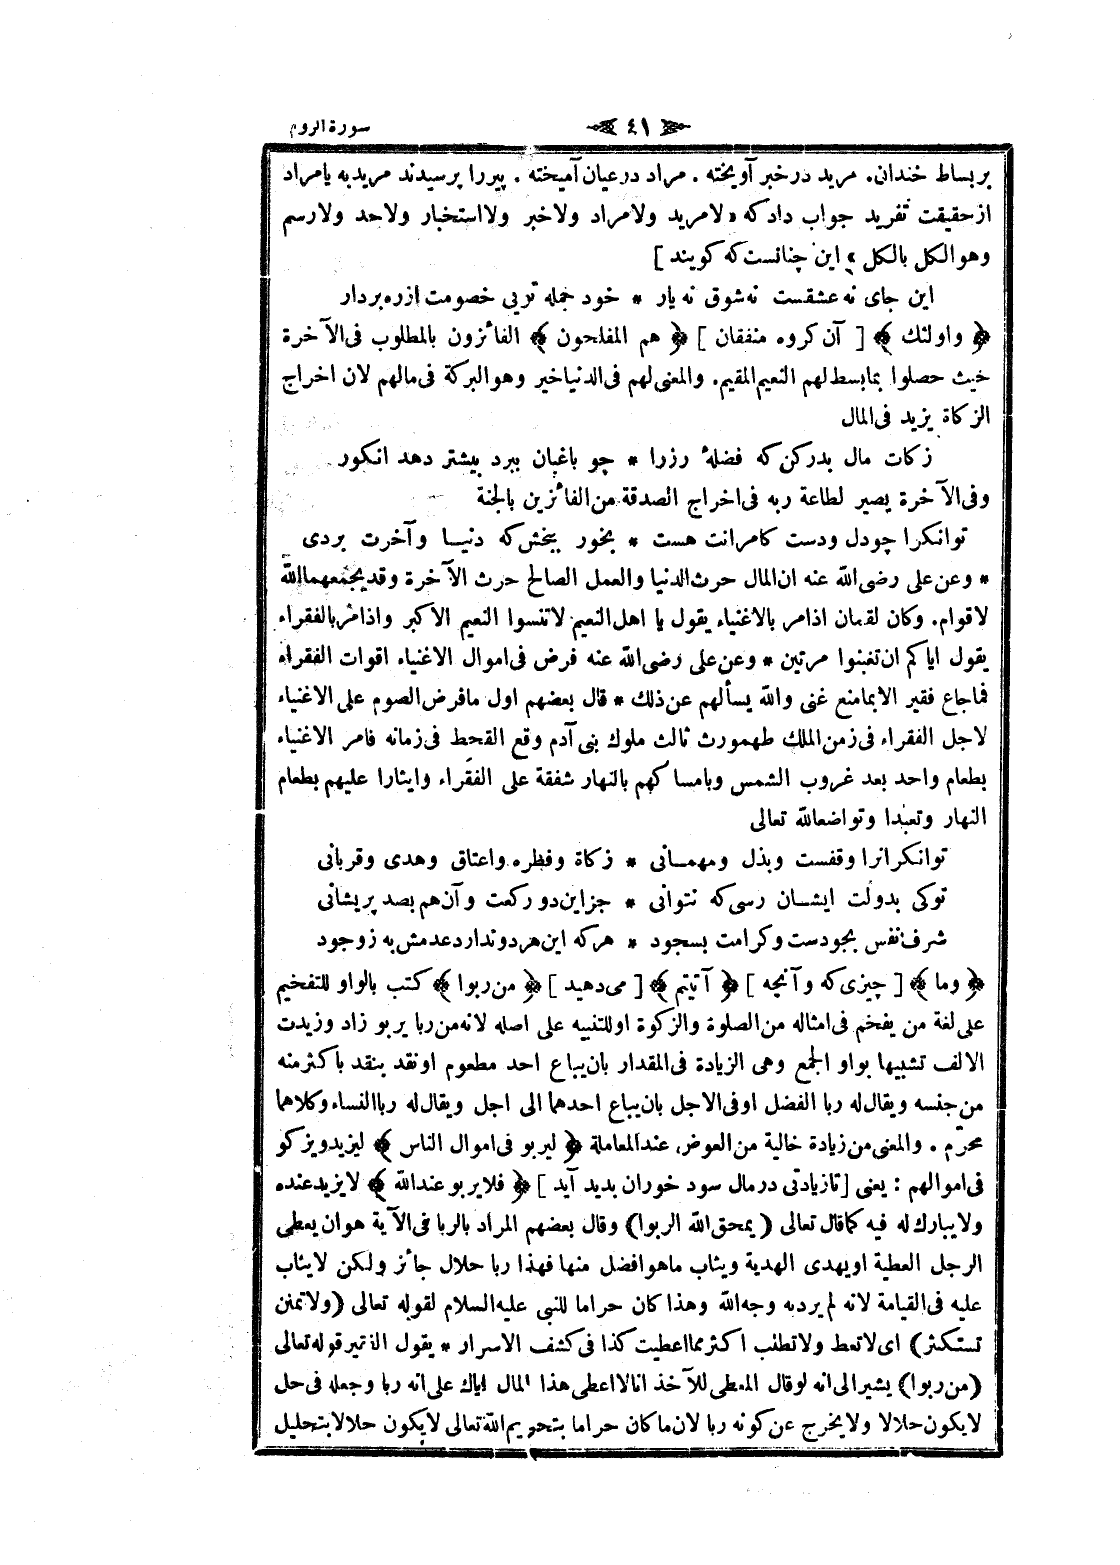 سورة الروم
٤١
بر بساط خندان. مريد در خبر آويخته . مراد در عيان آميخته . پيررا پرسيدند مريد به يا مراد
از حقيقت تفريد جواب داد كه «لا مريد ولا مراد ولا خبر ولا استخبار ولا حد ولا رسم
وهو الكل بالكل» اين چنانست كه كويند ]
اين جاى نه عشقست نه شوق نه يار * خود جمله تويى خصومت از ره بردار
﴿ واولئك ﴾ [ آن كروه منفقان ] ﴿ هم المفلحون ﴾ الفائزون بالمطلوب فى الآخرة
حيث حصلوا بما بسط لهم النعيم المقيم. والمعنى لهم فى الدنيا خير وهو البركة فى مالهم لان اخراج
الزكاة يزيد فى المال
زكات مال بدر كن كه فضلهٔ رزرا * چو باغبان ببرد بيشتر دهد انكور
وفى الآخرة يصير لطاعة ربه فى اخراج الصدقة من الفائزين بالجنة
توانكرا چو دل ودست كامرانت هست * بخور ببخش كه دنيــا وآخرت بردى
* وعن على رضى الله عنه ان المال حرث الدنيا والعمل الصالح حرث الآخرة وقد يجمعهما الله
لاقوام. وكان لقمان اذا مر بالاغنياء يقول يا اهل النعيم لا تنسوا النعيم الاكبر واذا مر بالفقراء
يقول اياكم ان تغبنوا مرتين * وعن على رضى الله عنه فرض فى اموال الاغنياء اقوات الفقراء
فما جاع فقير الا بما منع غنى والله يسألهم عن ذلك * قال بعضهم اول ما فرض الصوم على الاغنياء
لاجل الفقراء فى زمن الملك طهمورث ثالث ملوك بنى آدم وقع القحط فى زمانه فامر الاغنياء
بطعام واحد بعد غروب الشمس وبامساكهم بالنهار شفقة على الفقراء وايثارا عليهم بطعام
النهار وتعبدا وتواضعا لله تعالى
توانكرانرا وقفست وبذل ومهمــانى * زكاة وفطره واعتاق وهدى وقربانى
توكى بدولت ايشــان رسى كه نتوانى * جز اين دو ركعت وآن هم بصد پريشانى
شرف نفس بجودست وكرامت بسجود * هر كه اين هر دو ندارد عدمش به ز وجود
﴿ وما ﴾ [ چيزى كه وآنچه ] ﴿ آتيتم ﴾ [ مى دهيد ] ﴿ من ربوا ﴾ كتب بالواو للتفخيم
على لغة من يفخم فى امثاله من الصلوة والزكوة او للتنبيه على اصله لانه من ربا يربو زاد وزيدت
الالف تشبيها بواو الجمع وهى الزيادة فى المقدار بان يباع احد مطعوم او نقد بنقد باكثر منه
من جنسه ويقال له ربا الفضل او فى الاجل بان يباع احدهما الى اجل ويقال له ربا النساء وكلاهما
محرّم . والمعنى من زيادة خالية من العوض عند المعاملة ﴿ ليربو فى اموال الناس ﴾ ليزيد ويزكو
فى اموالهم : يعنى [ تا زيادتى در مال سود خوران بديد آيد ] ﴿ فلا يربو عند الله ﴾ لا يزيد عنده
ولا يبارك له فيه كما قال تعالى (يمحق الله الربوا) وقال بعضهم المراد بالربا فى الآية هو ان يعطى
الرجل العطية او يهدى الهدية ويثاب ما هو افضل منها فهذا ربا حلال جائز ولكن لا يثاب
عليه فى القيامة لانه لم يرد به وجه الله وهذا كان حراما للنبى عليه السلام لقوله تعالى (ولا تمنن
تستكثر) اى لا تعط ولا تطلب اكثر مما اعطيت كذا فى كشف الاسرار * يقول الفقير قوله تعالى
(من ربوا) يشير الى انه لو قال المعطى للآخذ انا لا اعطى هذا المال اياك على انه ربا وجعله فى حل
لا يكون حلالا ولا يخرج عن كونه ربا لان ما كان حراما بتحريم الله تعالى لا يكون حلالا بتحليل